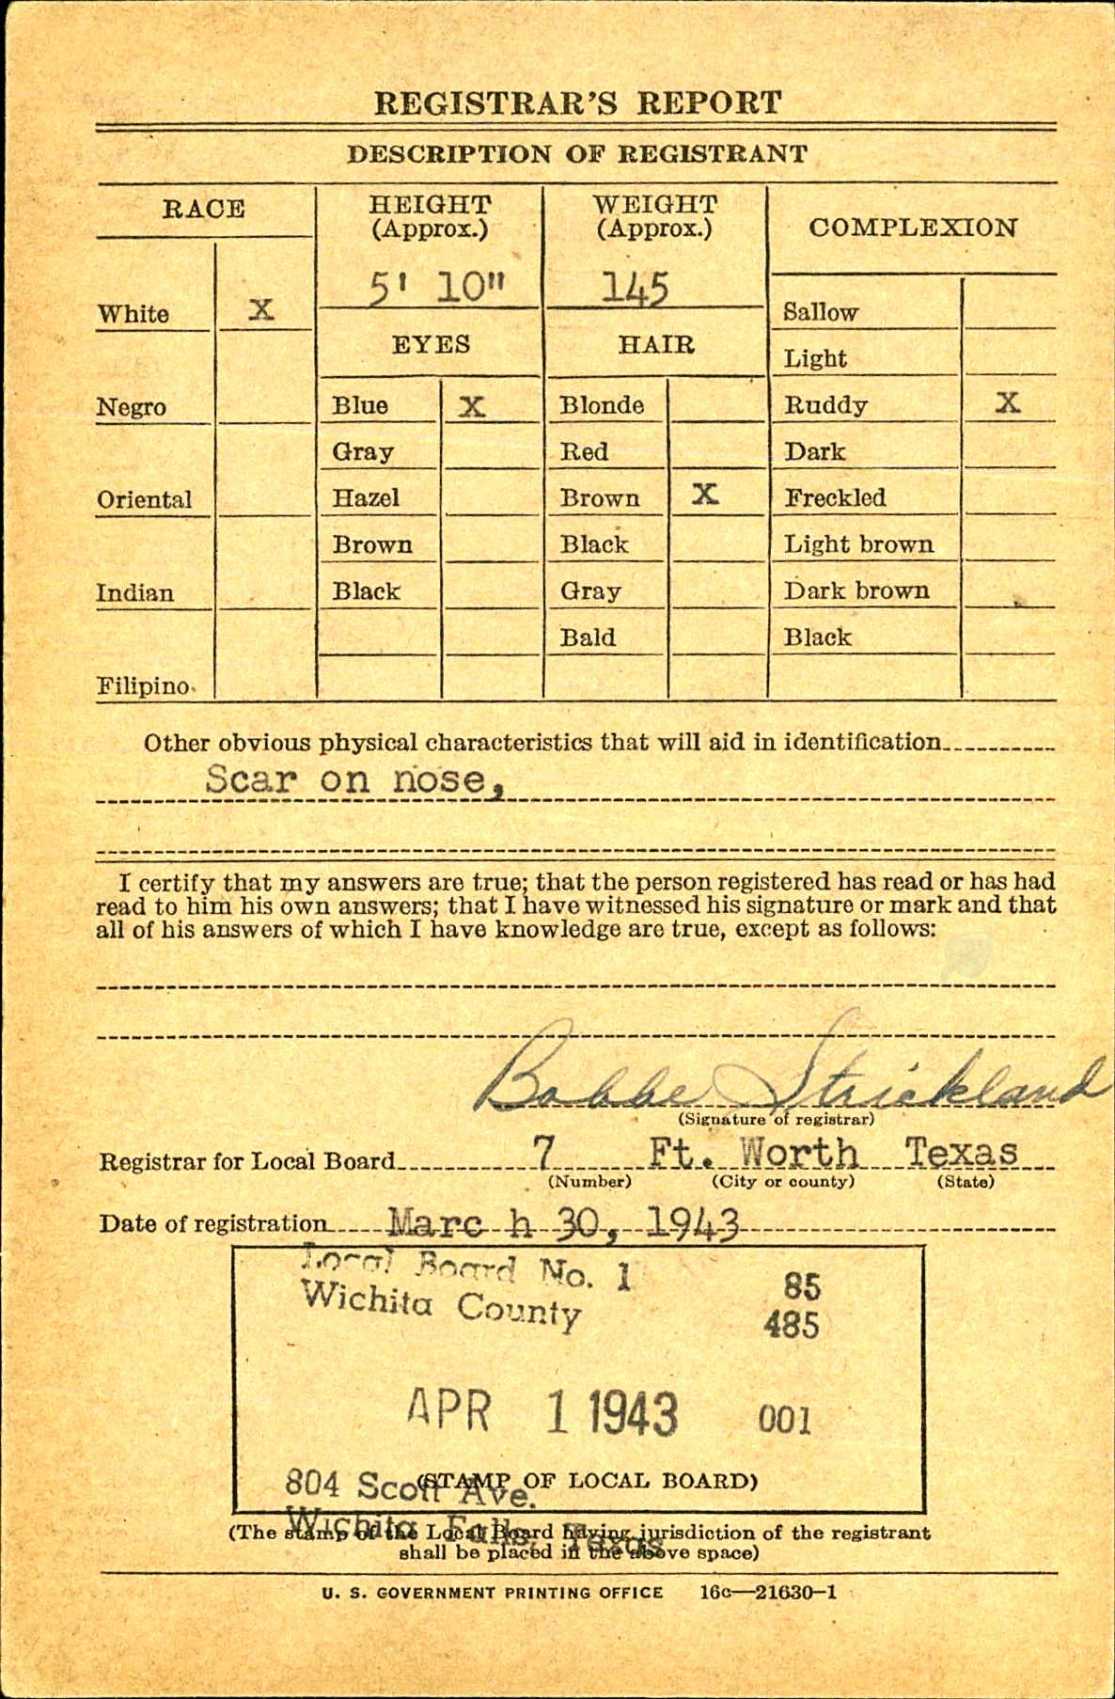 REGISTRAR'S REPORT
DESCRIPTION OF REGISTRANT
RACE
HEIGHT
(Approx.)
WEIGHT
(Approx.)
COMPLEXION
5' 10"
145
White X
Sallow
EYES
HAIR
Light
Negro
Blue X
Blonde
Ruddy X
Gray
Red
Dark
Oriental
Hazel
Brown X
Freckled
Brown
Black
Light brown
Indian
Black
Gray
Dark brown
Bald
Black
Filipino
Other obvious physical characteristics that will aid in identification
Scar on nose,
I certify that my answers are true; that the person registered has read or has had
read to him his own answers; that I have witnessed his signature or mark and that
all of his answers of which I have knowledge are true, except as follows:
Bobbe Strickland
(Signature of registrar)
Registrar for Local Board 7 Ft. Worth Texas
(Number) (City or county) (State)
Date of registration Marc h 30, 1943
Local Board No. 1 85
Wichita County 485
APR 1 1943 001
(STAMP OF LOCAL BOARD)
804 Scott Ave.
Wichita Falls, Texas
(The stamp of the Local Board having jurisdiction of the registrant
shall be placed in the above space)
U. S. GOVERNMENT PRINTING OFFICE 16c—21630-1